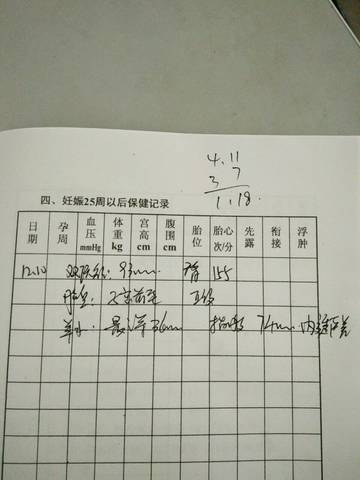 4.11
3 7
1.18.
四、妊娠25周以后保健记录
日期 孕周 血压mmHg 体重kg 宫高cm 腹围cm 胎位 胎心次/分 先露 衔接 浮肿
12.10 双顶径: 93mm 臀 155
胎盘: 子宫前壁 II级
羊水: 最深 36mm 指数 74mm